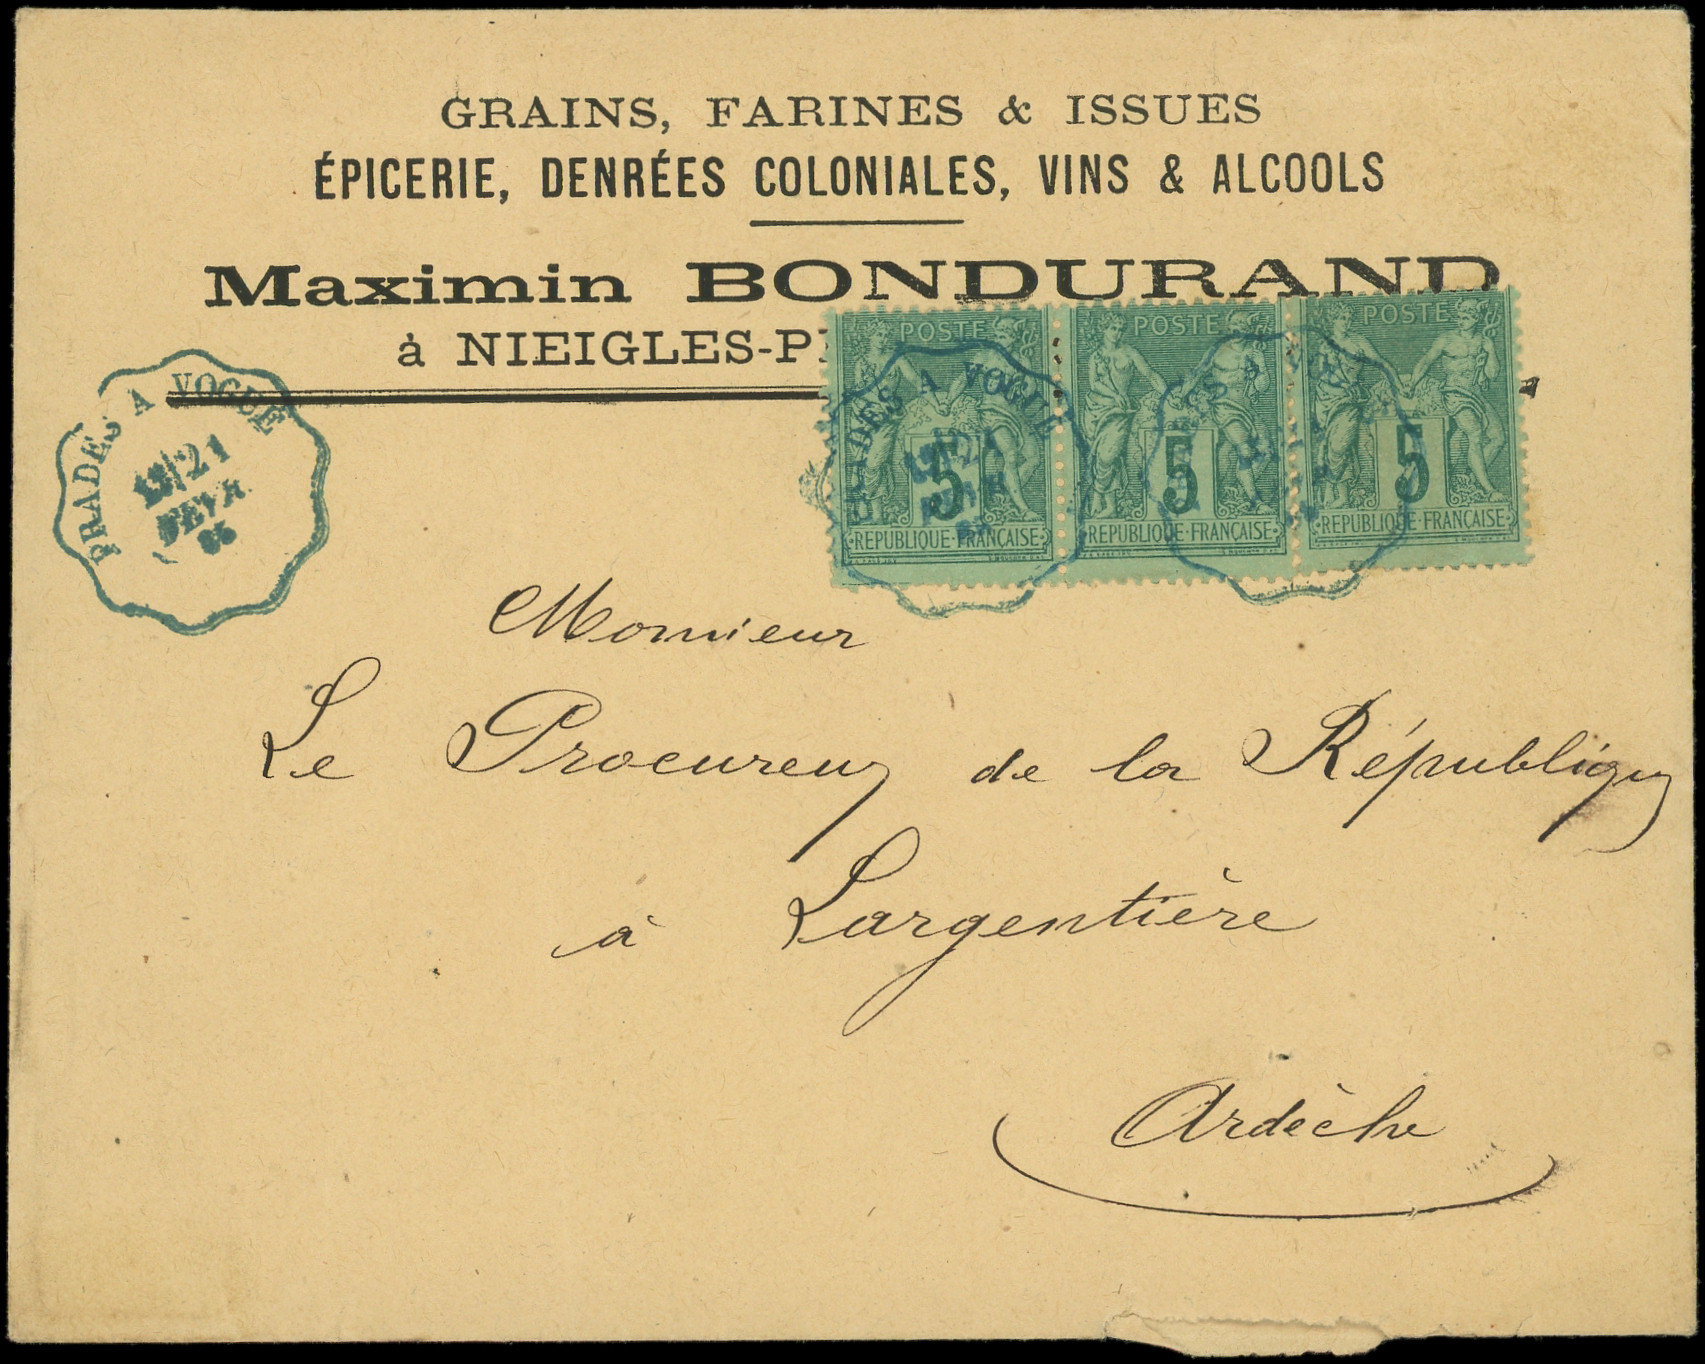 GRAINS, FARINES & ISSUES
ÉPICERIE, DENRÉES COLONIALES, VINS & ALCOOLS
Maximin BONDURAND
à NIEIGLES-P
POSTE POSTE POSTE
5 5 5
REPUBLIQUE FRANÇAISE REPUBLIQUE FRANÇAISE REPUBLIQUE FRANÇAISE
PRADES A VOGUE
21
FEVR
95
PRADES A VOGUE
Monsieur
Le Procureur de la République
à Largentière
Ardèche